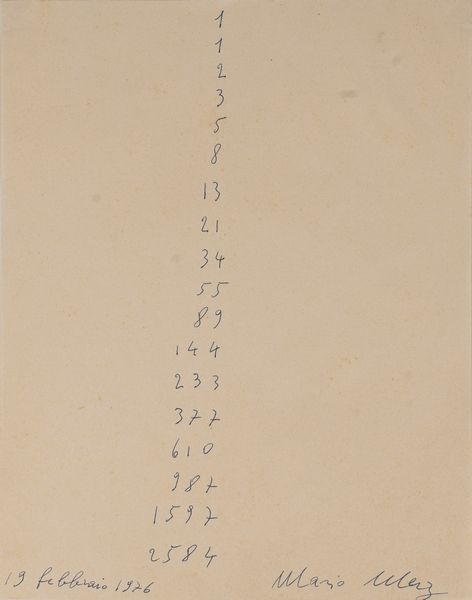 1
1
2
3
5
8
13
21
34
55
89
144
233
377
610
987
1597
2584
19 febbraio 1976 Mario Merz